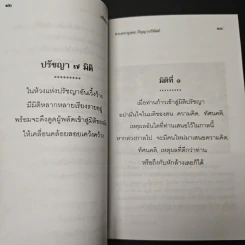 ปรัชญา ๗ มิติ
ในห้วงแห่งปรัชญาอันเวิ้งว้าง
มีมิติหลากหลายเรียงรายอยู่
พร้อมจะดึงดูดผู้พลัดเข้าสู่มิติของมัน
ให้เคลื่อนคล้อยลอยเคว้งคว้าง
มิติที่ ๑
เมื่อท่านก้าวเข้าสู่มิติปรัชญา
อย่ามั่นใจในมติของตน ความคิด, ทัศนคติ,
เหตุผลอันใดที่ท่านเสนอไว้ในกาลนี้
หากล่วงกาลไป จะมีคนใหม่มาเสนอความคิด,
ทัศนคติ, เหตุผลที่ดีกว่าท่าน
หรือถึงกับหักล้างเลยก็ได้